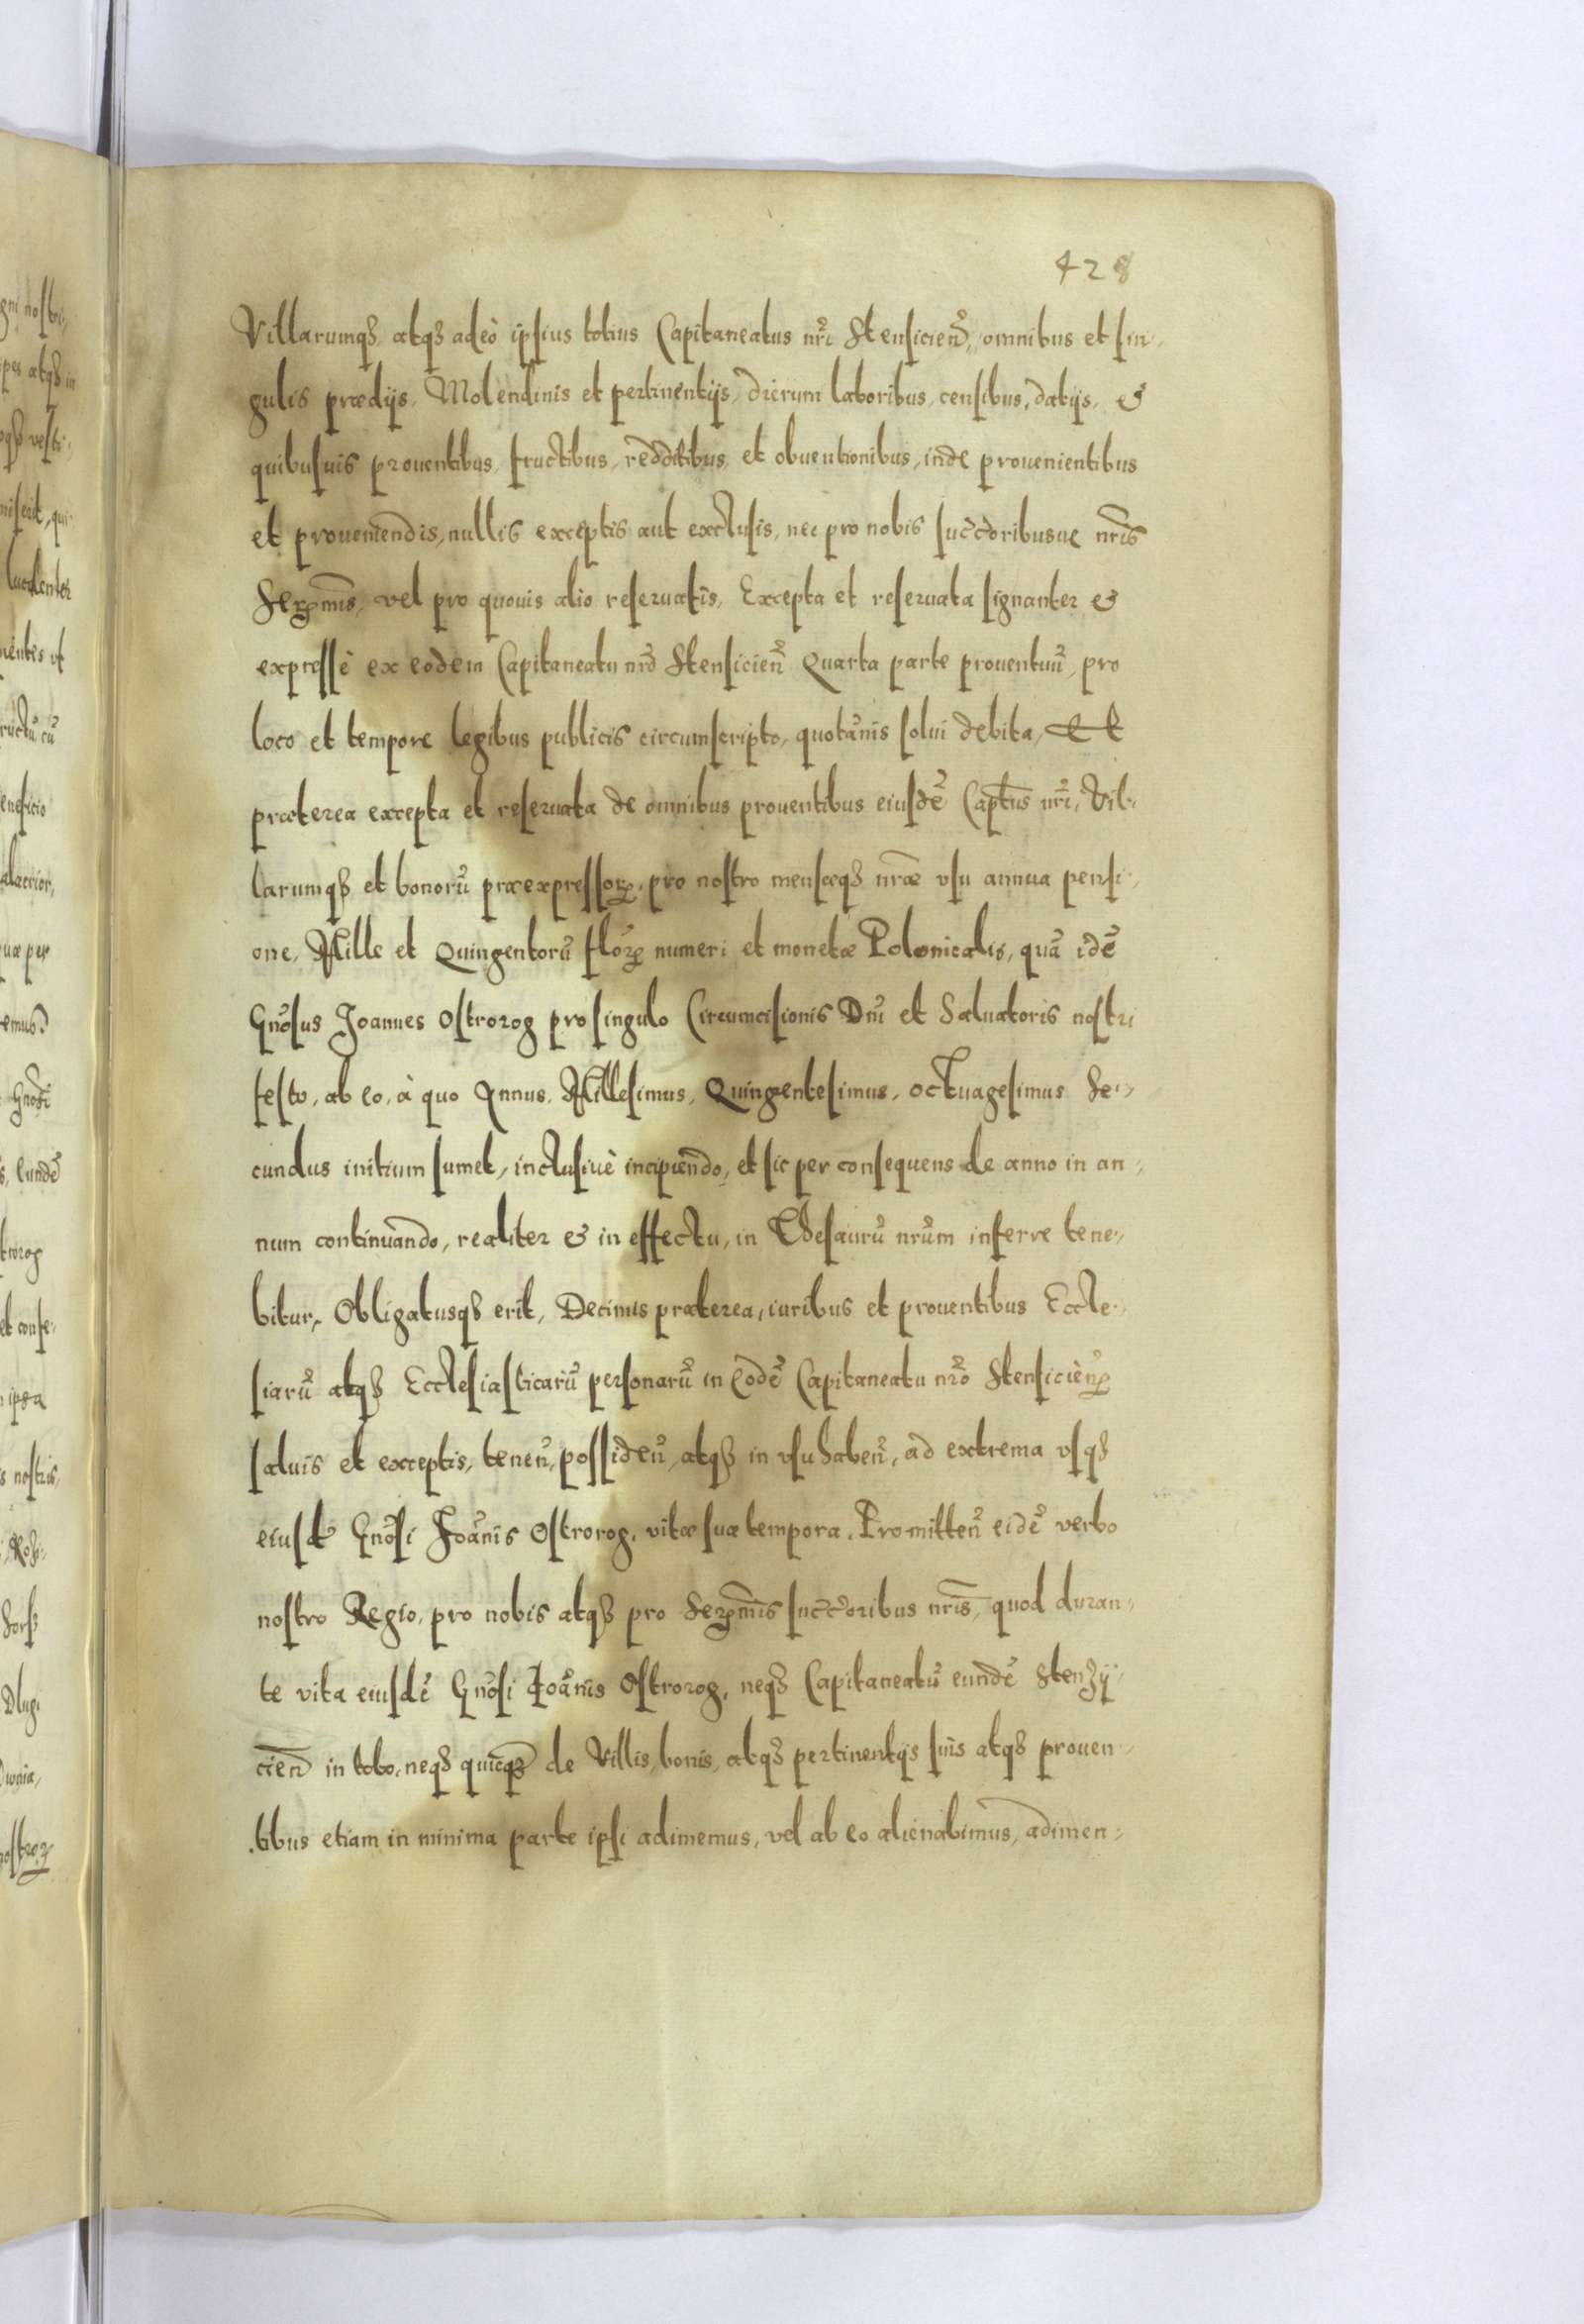 428
Villarumqꝫ atqꝫ adeò ipsius totius Capitaneatus nri̅ Stensicien̅, omnibus et sin,
gulis prædijs, Molendinis et pertinentijs, dierum laboribus, censibus, datijs, &
quibusuis prouentibus, fructibus, redditibus, et obuentionibus, inde prouenientibus
et proueniendis, nullis exceptis aut exclusis, nec pro nobis succ̅oribusue nri̅s
Serꝫmis̅, vel pro quouis alio reseruatis, Excepta et reseruata signanter &
expressè ex eodem Capitaneatu nro̅ Stensicien̅ Quarta parte prouentuu̅, pro
loco et tempore legibus publicis circumscripto, quotan̅is solui debita, Et
præterea excepta et reseruata de omnibus prouentibus eiusde̅ Capt̅us nri̅, Vil,
larumqꝫ et bonoru̅ præexpressorꝝ, pro nostro mensæqꝫ nræ̅ vsu annua pensi,
one, Mille et Quingentoru̅ florꝝ numeri et monetæ Polonicalis, qua̅ ide̅
Gn̅osus Joannes Ostrorog pro singulo Circumcisionis Dn̅i et Saluatoris nostri
festo, ab eo, à quo Annus, Millesimus, Quingentesimus, octuagesimus Se,
cundus initium sumet, inclusiuè incipiendo, et sic per consequens de anno in an,
num continuando, realiter & in effectu, in Thesauru̅ nru̅m inferre tene,
bitur, Obligatusqꝫ erit, Decimis præterea, iuribus et prouentibus Eccle,
siaru̅ atqꝫ Ecclesiasticaru̅ personaru̅ in Eode̅ Capitaneatu nro̅ Stensicien̅
saluis et exceptis, tenen̅, possiden̅, atqꝫ in vsu haben̅, ad extrema vsqꝫ
eiusd̅ Gn̅osi Joan̅is Ostrorog, vitæ suæ tempora. Promitten̅ eide̅ verbo
nostro Regio, pro nobis atqꝫ pro Serꝫmis̅ succ̅oribus nri̅s, quod duran,
te vita eiusde̅ Gn̅osi Joan̅is Ostrorog, neqꝫ Capitaneatu̅ eunde̅ Stenzy
cien̅ in toto, neqꝫ quicqꝫ̅ de Villis, bonis, atqꝫ pertinentijs suis atqꝫ prouen,
tibus etiam in minima parte ipsi adimemus, vel ab eo alienabimus, adimen,